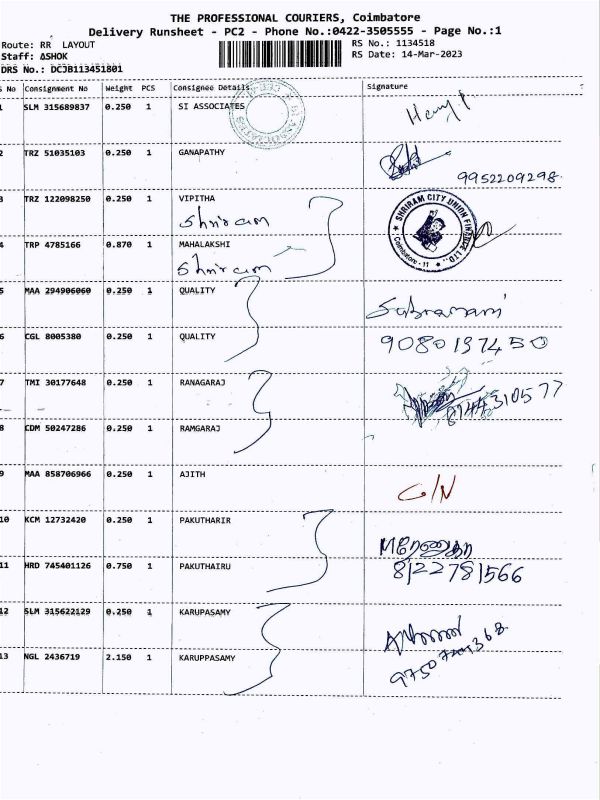 THE PROFESSIONAL COURIERS, Coimbatore
Delivery Runsheet - PC2 - Phone No.:0422-3505555 - Page No.:1
Route: RR LAYOUT
RS No.: 1134518
Staff: ASHOK
RS Date: 14-Mar-2023
DRS No.: DCJB113451801
S No Consignment No Weight PCS Consignee Details Signature
1 SLM 315689837 0.250 1 SI ASSOCIATES
2 TRZ 51035103 0.250 1 GANAPATHY
9952209298
3 TRZ 122098250 0.250 1 VIPITHA
Shriram
SHRIRAM CITY UNION FINANCE LTD.
Coimbatore - 11
4 TRP 4785166 0.870 1 MAHALAKSHI
Shriram
5 MAA 294906060 0.250 1 QUALITY
6 CGL 8005380 0.250 1 QUALITY
9080197450
7 TMI 30177648 0.250 1 RANAGARAJ
8144310577
8 CDM 50247286 0.250 1 RAMGARAJ
9 MAA 858706966 0.250 1 AJITH
G/N
10 KCM 12732420 0.250 1 PAKUTHARIR
11 HRD 745401126 0.750 1 PAKUTHAIRU
8122781566
12 SLM 315622129 0.250 1 KARUPASAMY
13 NGL 2436719 2.150 1 KARUPPASAMY